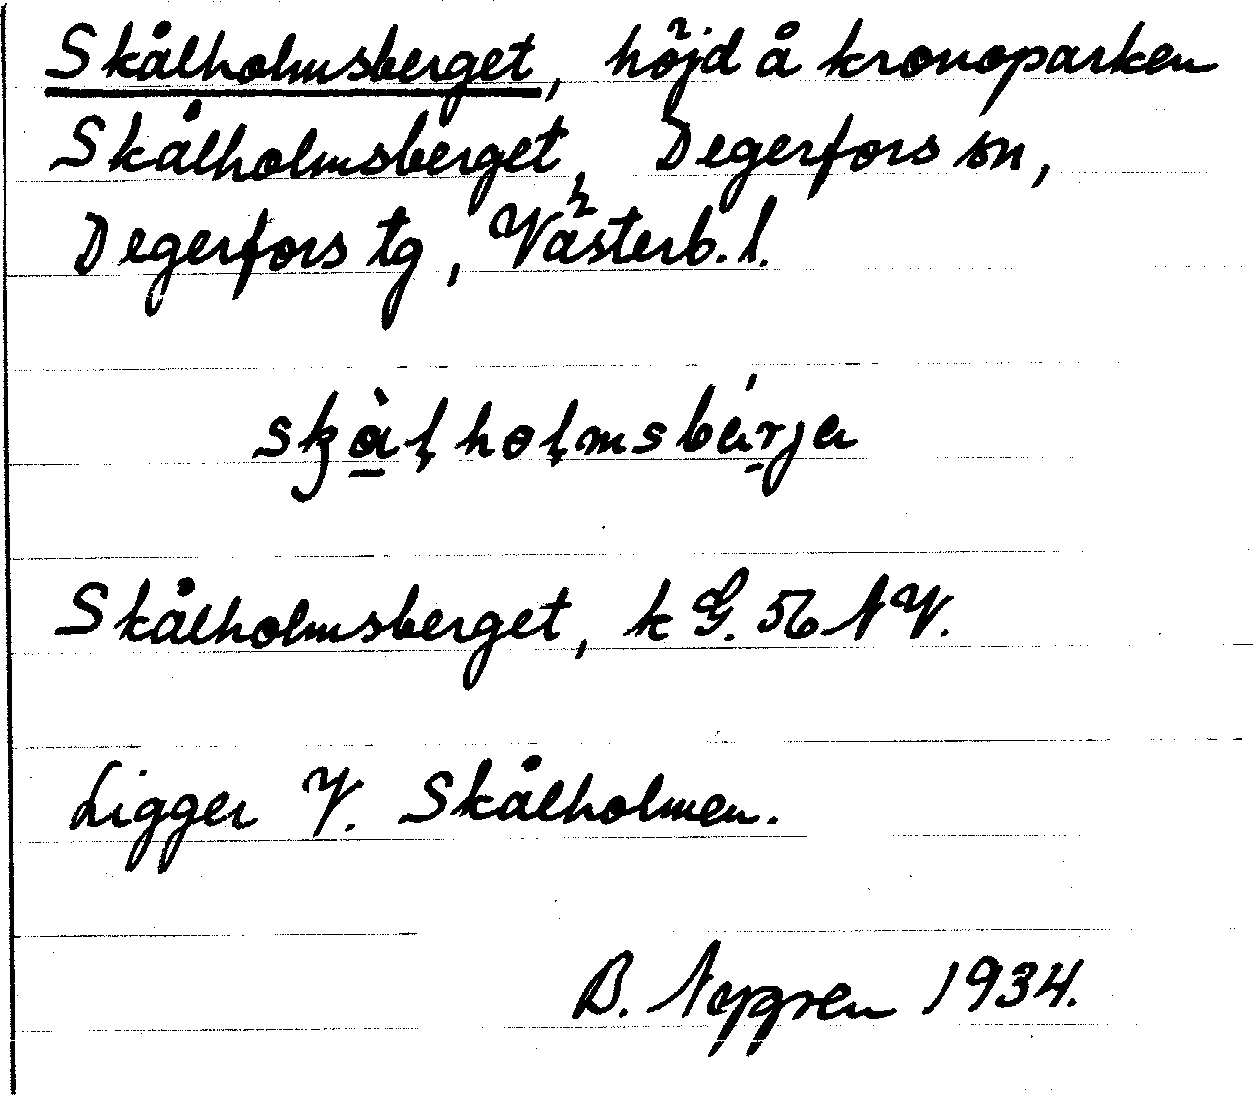 Skålholmsberget, höjd å kronoparken
Skålholmsberget, Degerfors sn,
Degerfors tg, Västerb. l.
skàlholmsbárja
Skålholmsberget, k G. 56 NV.
Ligger V. Skålholmen.
B. Nygren 1934.